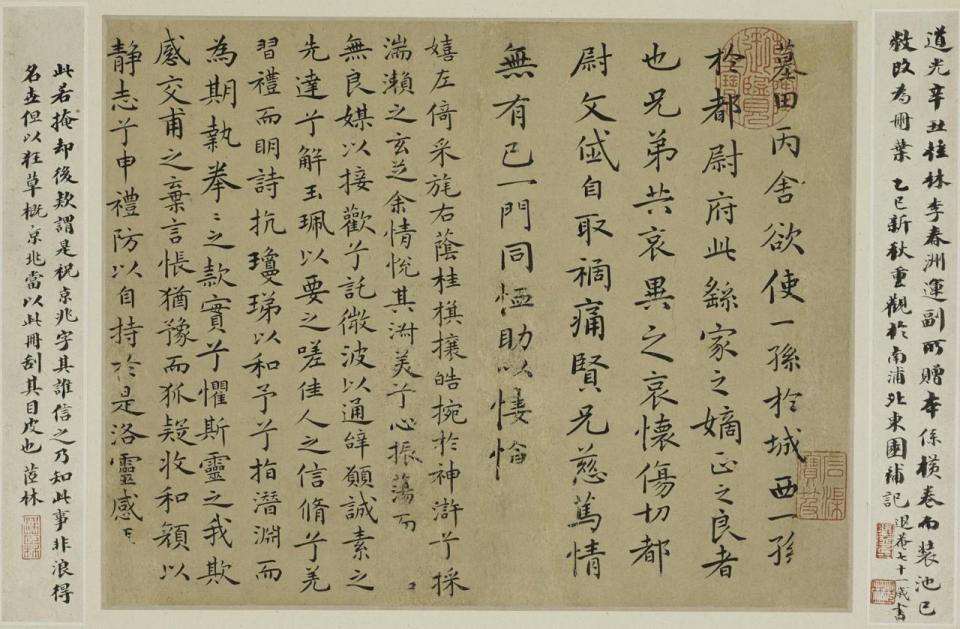 道光辛丑桂林李春洲運副所贈本係橫卷而裝池已
敝改為冊葉 乙巳新秋重觀於南浦北東園補記 退菴七十一歲書
墓田丙舍欲使一孫於城西一孫
於都尉府此繇家之嫡正之良者
也兄弟共哀異之哀懷傷切都
尉文岱自取禍痛賢兄慈篤情
無有已一門同恤助以悽愴
嬉左倚采旄右蔭桂棋攘皓捥於神滸兮採
湍瀨之玄芝余情悅其淑美兮心振蕩而
無良媒以接歡兮託微波以通辭願誠素之
先達兮解玉珮以要之嗟佳人之信脩兮羌
習禮而明詩抗瓊珶以和予兮指潛淵而
為期執拳〻之款實兮懼斯靈之我欺
感交甫之棄言悵猶豫而狐疑收和顏以
静志兮申禮防以自持於是洛靈感
此若掩却後款謂是祝京兆字其誰信之乃知此事非浪得
名 但以狂草概京兆當以此冊刮其目皮也 茝林